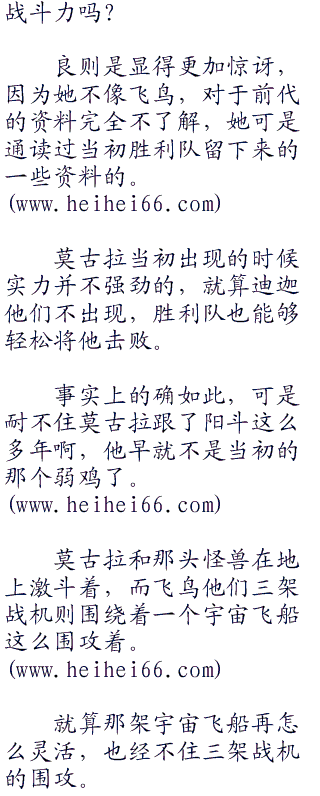 战斗力吗？
良则是显得更加惊讶，
因为她不像飞鸟，对于前代
的资料完全不了解，她可是
通读过当初胜利队留下来的
一些资料的。
(www.heihei66.com)
莫古拉当初出现的时候
实力并不强劲的，就算迪迦
他们不出现，胜利队也能够
轻松将他击败。
事实上的确如此，可是
耐不住莫古拉跟了阳斗这么
多年啊，他早就不是当初的
那个弱鸡了。
(www.heihei66.com)
莫古拉和那头怪兽在地
上激斗着，而飞鸟他们三架
战机则围绕着一个宇宙飞船
这么围攻着。
(www.heihei66.com)
就算那架宇宙飞船再怎
么灵活，也经不住三架战机
的围攻。